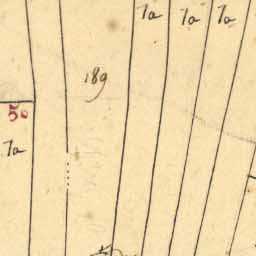 7a 7a 7a
189
50
7a